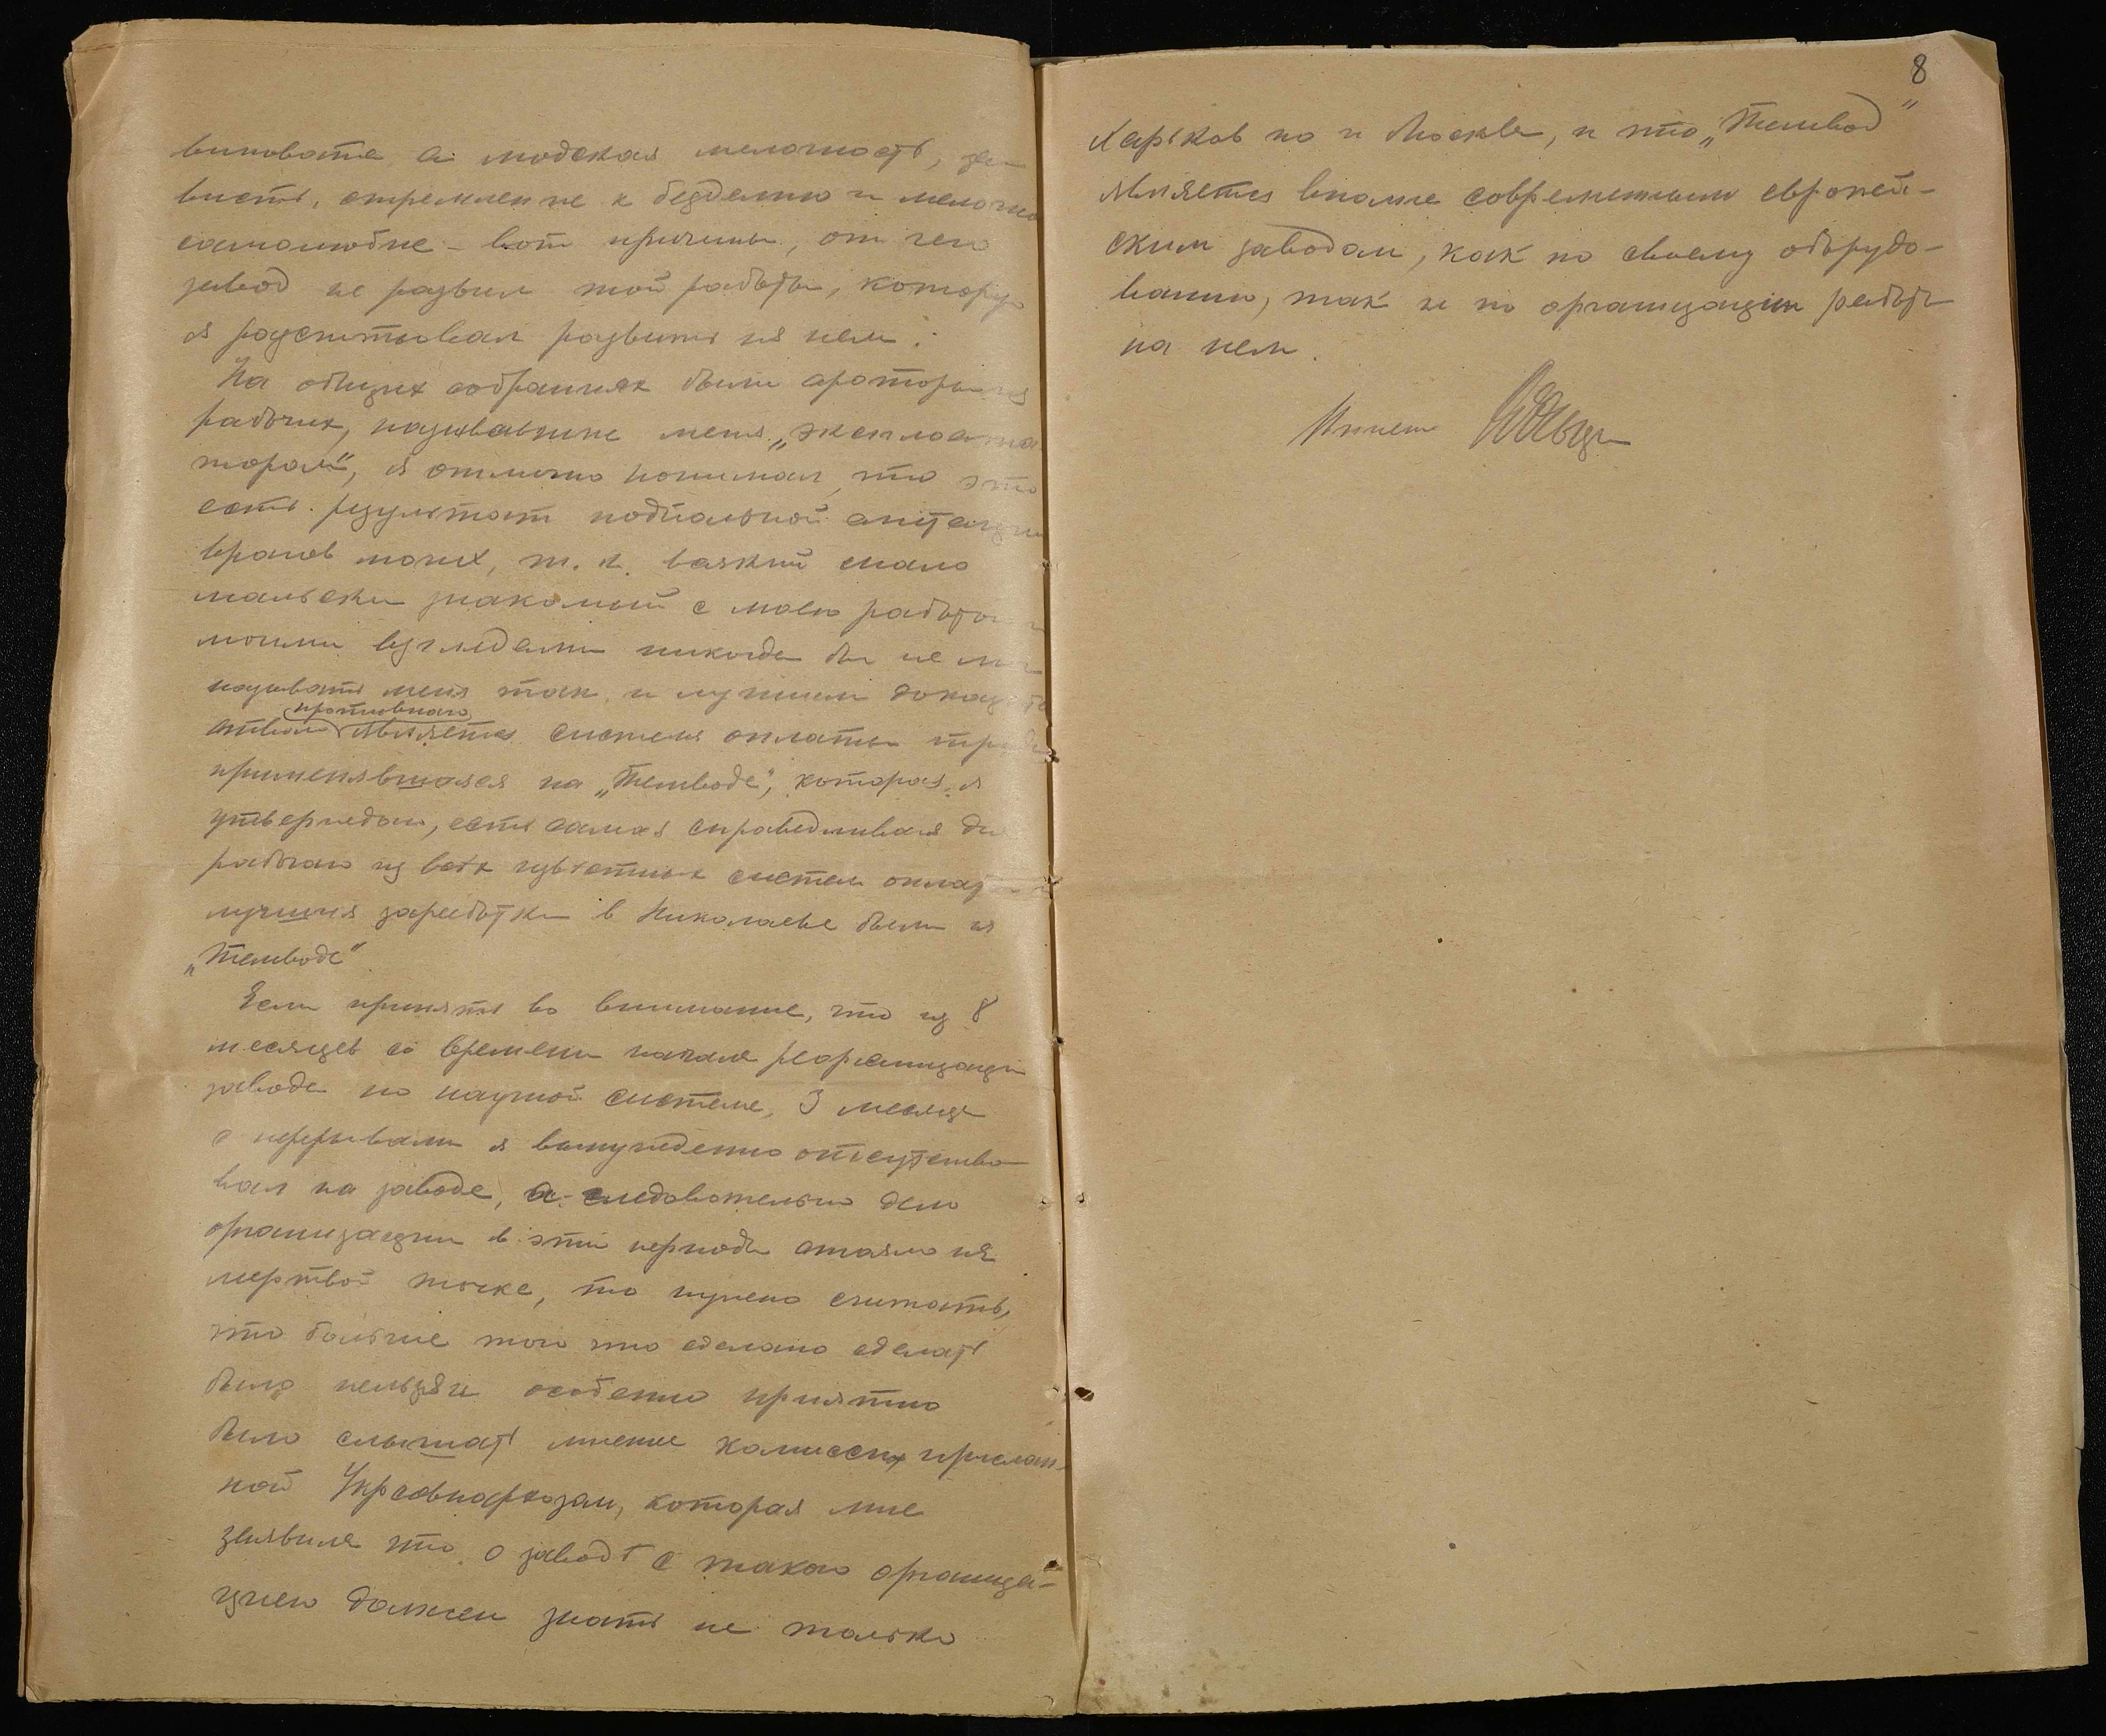 виновата, а людская мелочность, за-
висть, стремление к безделию и мелочно
самолюбие – вот причины, от чего
завод не развил той работы, которую
я рассчитывал развить на нем.
На общих собраниях были ораторы из
рабочих, называвшие меня „эксплоата
тором“, я отлично понимал, что это
есть результат подпольной агитации
врагов моих, т. к. всякий мало
мальски знакомый с моею работою
моими взглядами никогда бы не мог
называть меня так и лучшим доказатель
противного
ством является система оплаты труда
применявшаяся на „Темводе“, которая, я
утверждаю, есть самая справедливая для
рабочаго из всех известных систем оплаты
лучшия заработки в Николаеве были на
„Темводе“
Если принять во внимание, что из 8
месяцев со времени начала реорганизации
завода по научной системе, 3 месяца
с перерывами я вынужденно отсутство
вал на заводе, а следовательно дело
организации в эти периоды стояло на
мертвой точке, то нужно считать,
что больше того что сделано сделать
было нельзя и особенно приятно
было слышать мнение комиссии прислан-
ной Укрсовнархозам, которая мне
заявила что о заводе с такою организа-
циею должен знать не только
8
Харьков но и Москва, и что „Темвод“
является вполне современным европей-
ским заводам, как по своему оборудо-
ванию, так и по организации работы
на нем.